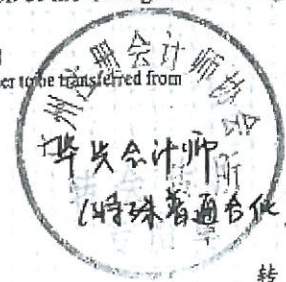 er to be transferred from
州注册会计师协会
华兴会计师
(特殊普通合伙
转